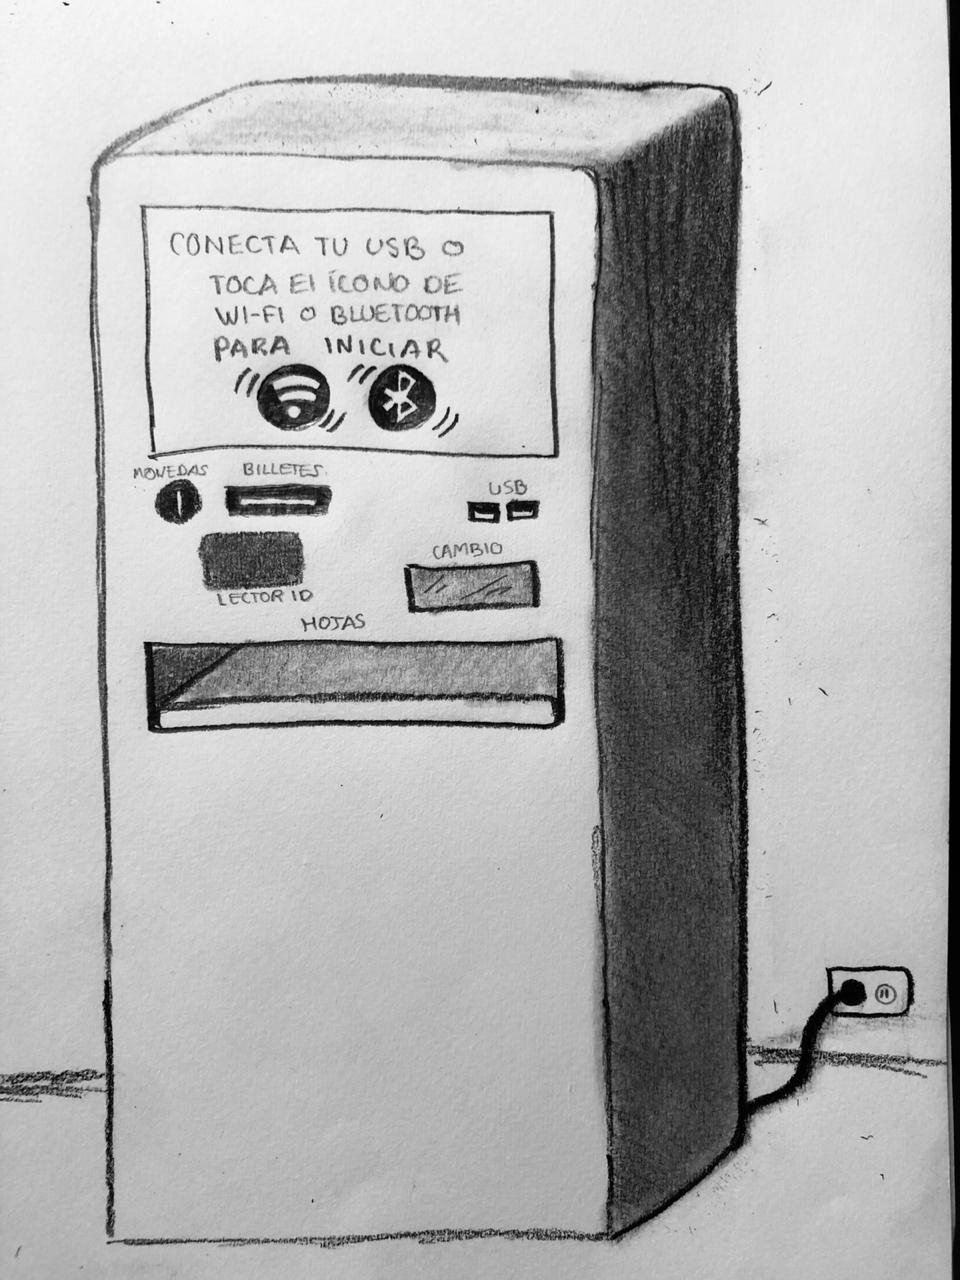 CONECTA TU USB O
TOCA El ÍCONO DE
WI-FI O BLUETOOTH
PARA INICIAR
MONEDAS
BILLETES
USB
CAMBIO
LECTOR ID
HOJAS